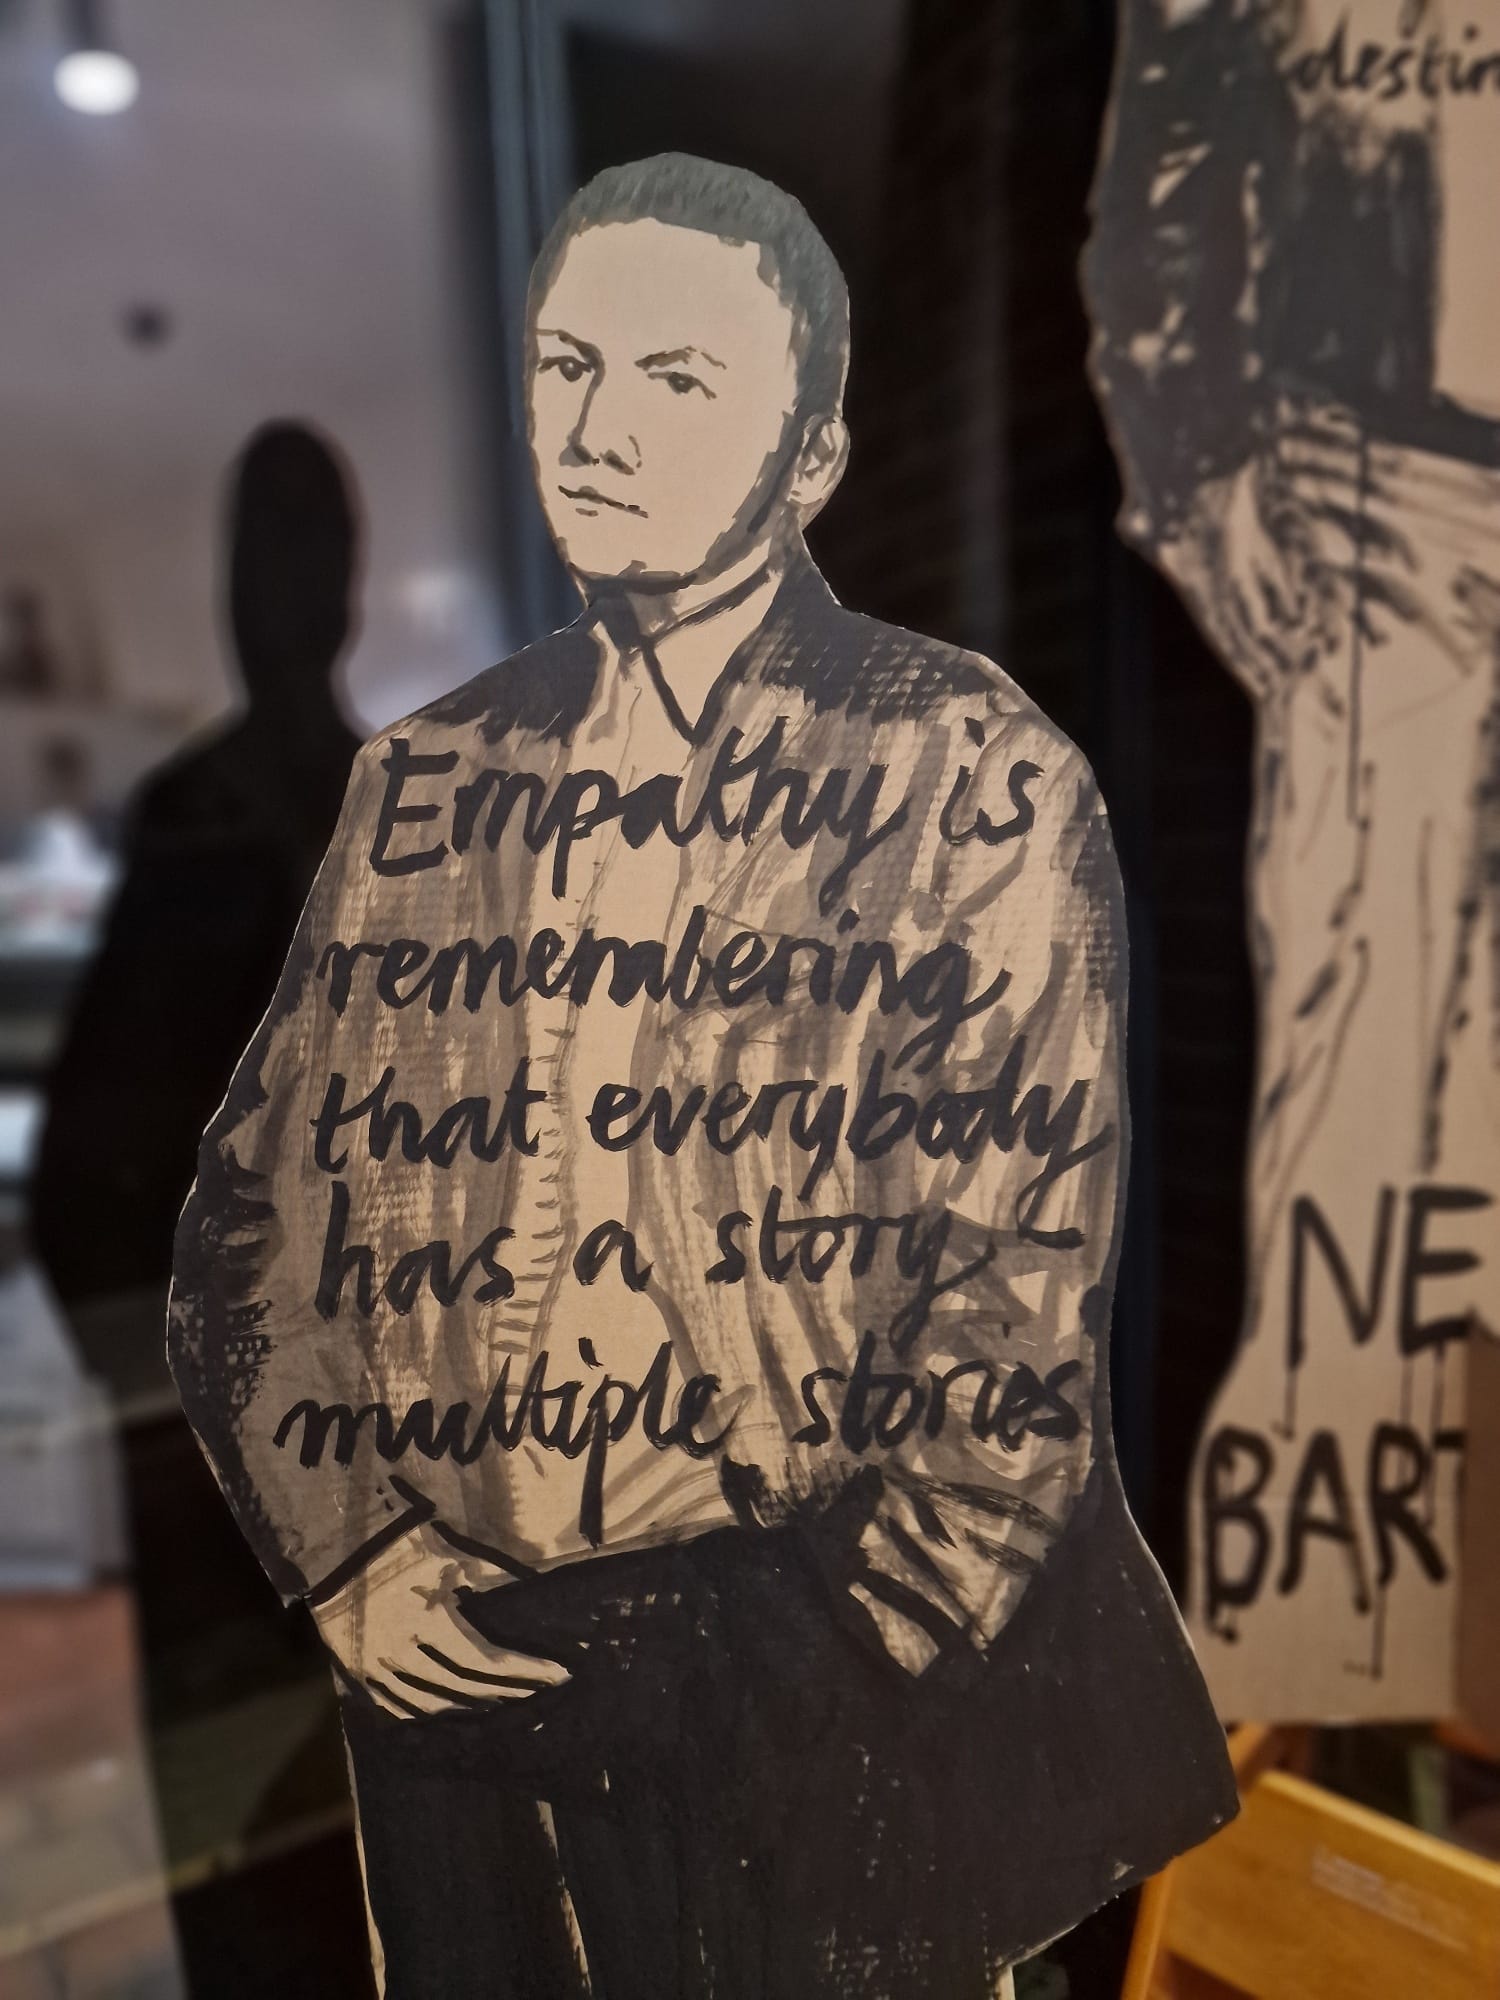 Empathy is
remembering
that everybody
has a story -
multiple stories
NE
BART